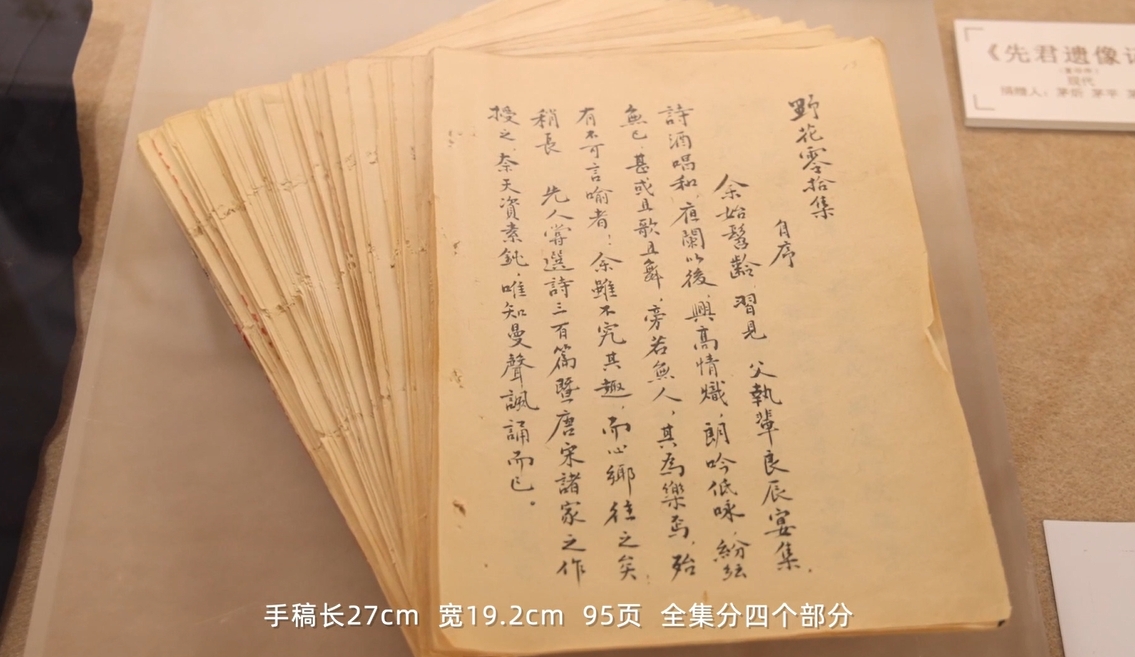 野花零拾集
自序
余始髫齡,習見 父執輩良辰宴集,
詩酒唱和,夜闌以後,興高情熾,朗吟低咏,紛紜
無已,甚或且歌且舞,旁若無人,其為樂焉,殆
有不可言喻者!余雖不究其趣,而心鄉往之矣.
稍長 先人嘗選詩三百篇暨唐宋諸家之作
授之,奈天資素鈍,唯知曼聲諷誦而已。
《先君遗像
(复印件)
现代
捐赠人:茅昕 茅平
手稿长27cm 宽19.2cm 95页 全集分四个部分